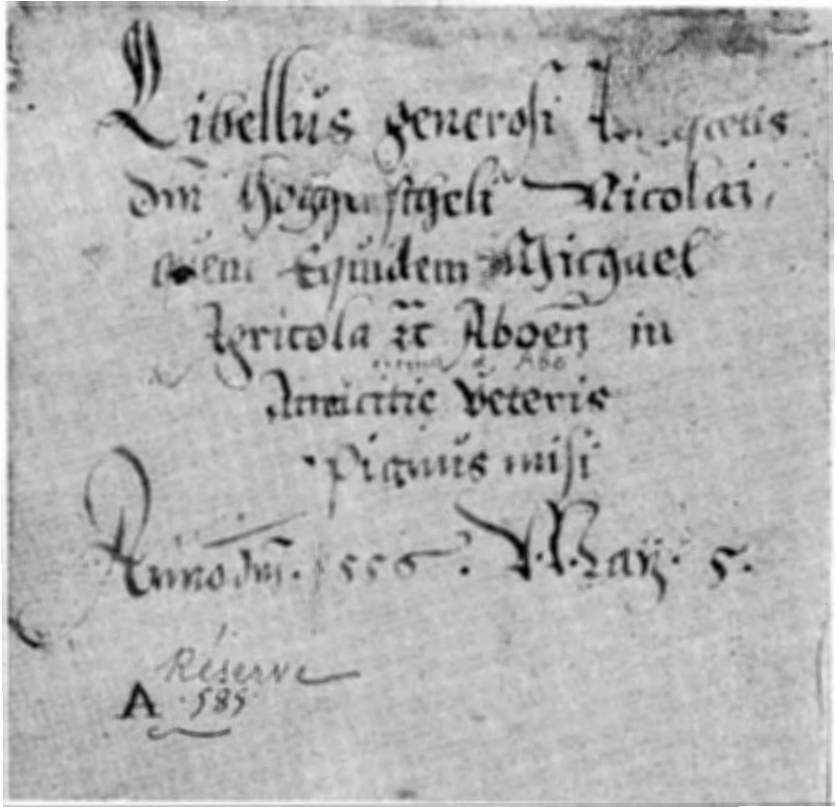 Libellus generosi
dm̄ Nicolai,
quem Equidem Michael
Agricola ꝛc̄ Aboen̄ in
Abo
Amicitie veteris
pignus misi
Anno dm̄. 1556. V. May. 5.
Réserve
A. 585